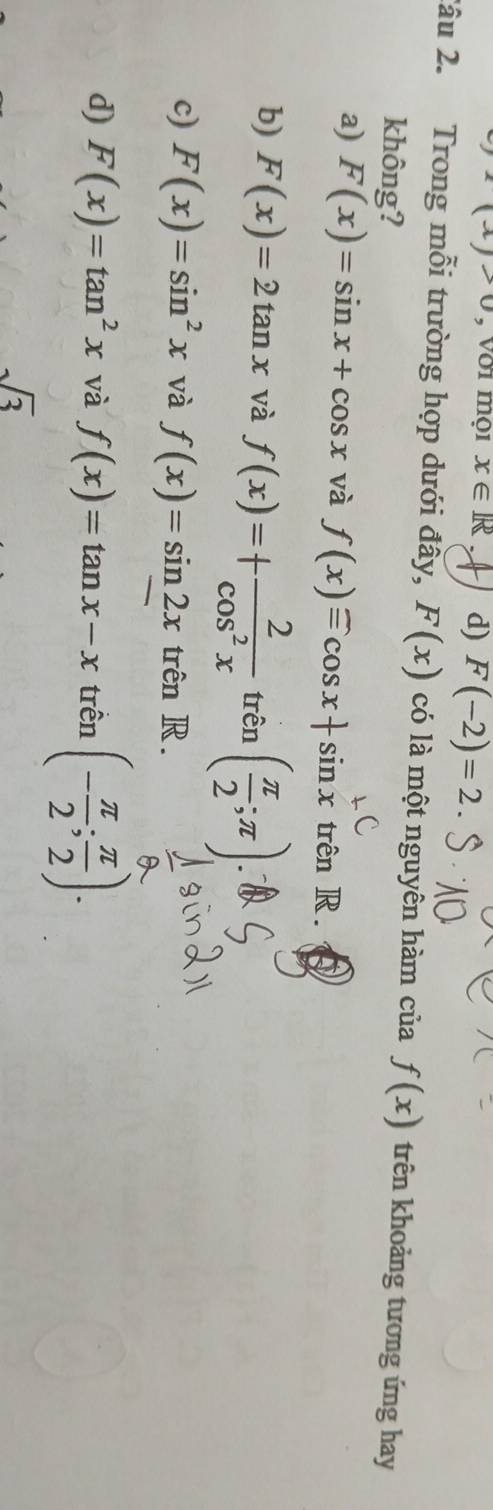 F(x) > 0, với mọi x ∈ ℝ. d) F(-2) = 2. S
Câu 2. Trong mỗi trường hợp dưới đây, F(x) có là một nguyên hàm của f(x) trên khoảng tương ứng hay
không?
a) F(x) = sin x + cos x và f(x) = cos x + sin x trên ℝ. +C
b) F(x) = 2 tan x và f(x) = + 2/cos² x trên (π/2; π). S
c) F(x) = sin² x và f(x) = sin 2x trên ℝ. 1/2 sin 2x
d) F(x) = tan² x và f(x) = tan x - x trên (-π/2; π/2).
√3